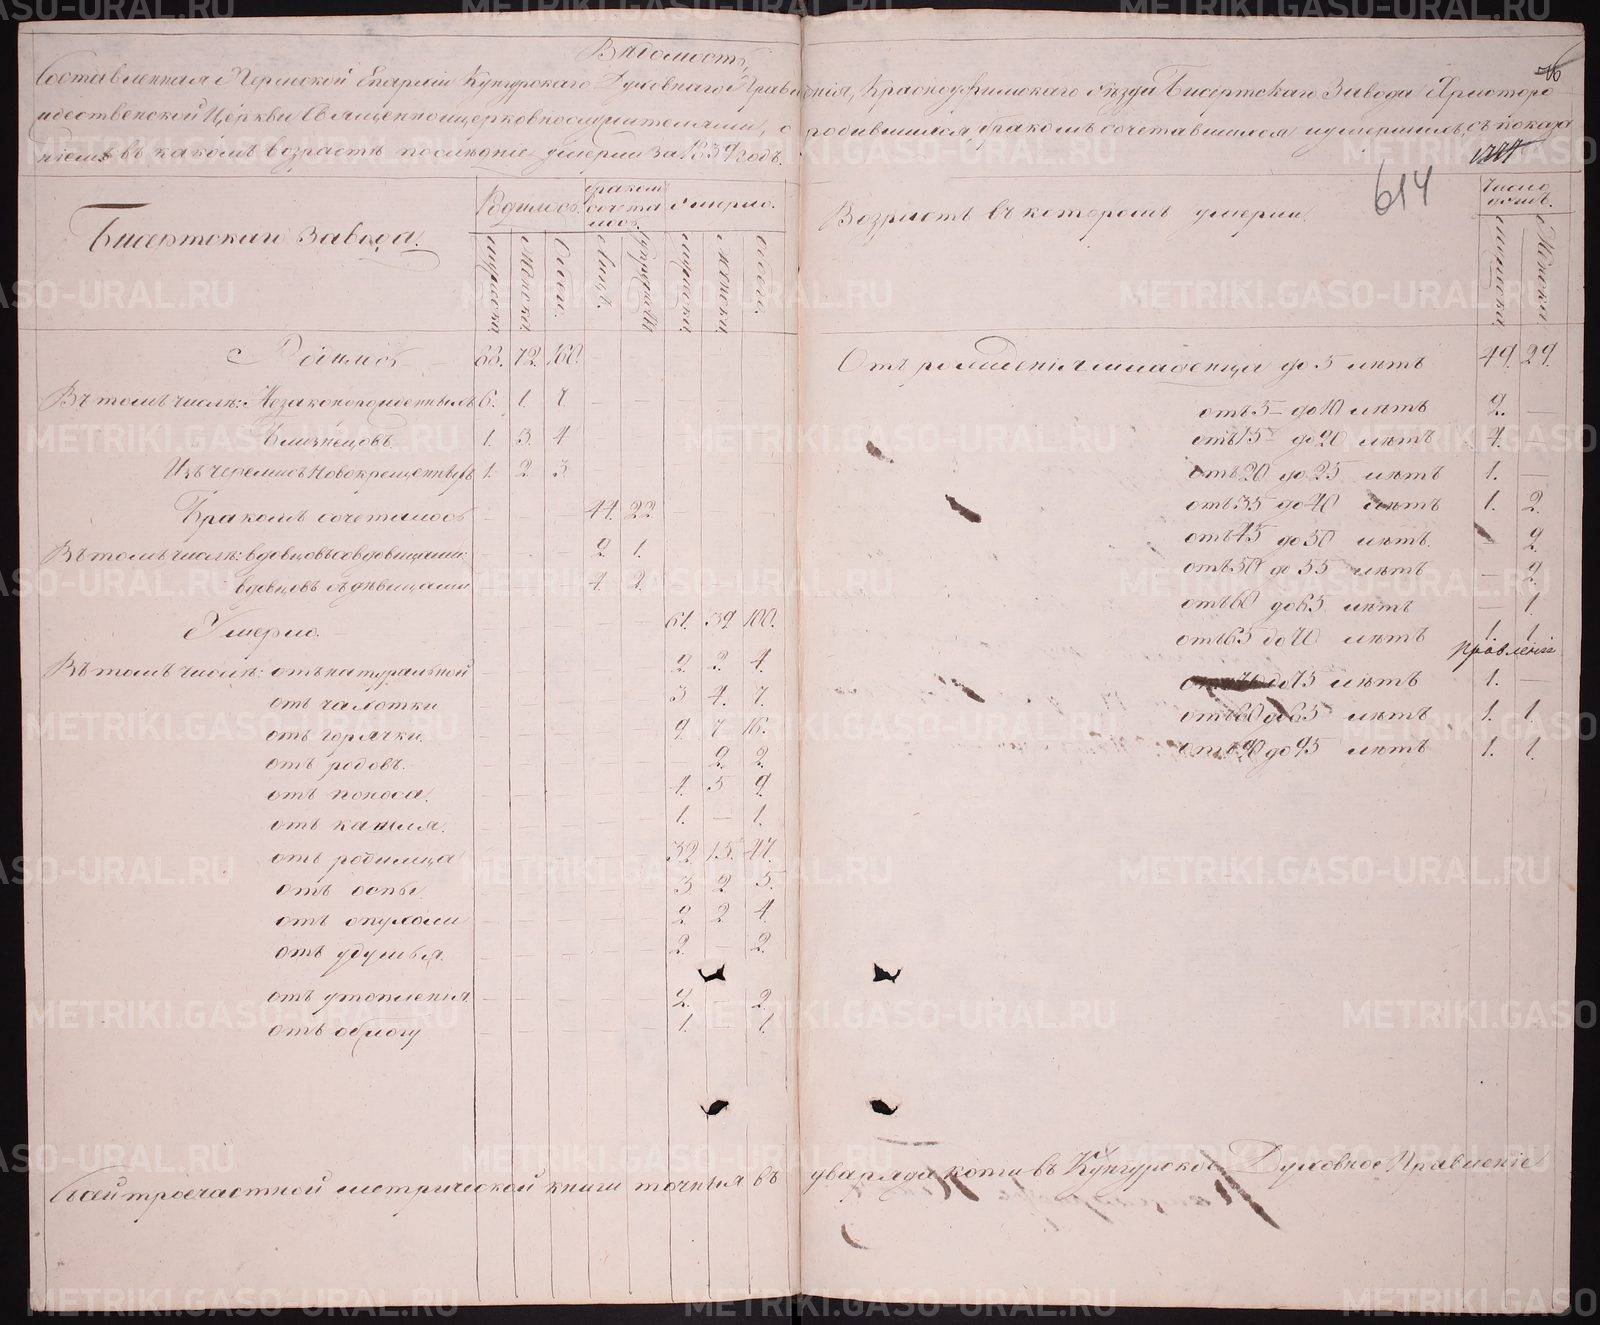 Ведомость,
Составленная Пермской Епархіи Кунгурскаго Духовнаго Правленія, Красноуфимскаго уѣзда Бисертскаго Завода Христоро
ждественской Церкви Священноцерковнослужителями, о родившихся бракомъ сочетавшихся и умершихъ, съ показа
ніемъ въ какомъ возрастѣ послѣдніе умерли за 1839 годъ.
614
Бисертскаго Завода.
Родилось.
браком сочета лось
Умерло.
Мужеска. Женска. Обоего. Лицъ. Супружествъ Мужеска. Женска. Обоего.
Возрастъ въ которомъ умерли.
Число душъ.
Мужеска. Женска.
Родилось 88. 72. 160.
Въ томъ числѣ: Незаконорожденныхъ 6. 1. 7
Близнецовъ. 1. 3. 4
Изъ черемисъ Новокрещенныхъ 1. 2 3
Бракомъ сочеталось 44. 22
Въ томъ числѣ: вдовцовъ съ вдовицами: 2. 1.
вдовцовъ съ дѣвицами 4. 2.
Умерло. 61. 39. 100.
Въ томъ числѣ: отъ натуральной 2. 2. 4.
отъ чахотки 3 4. 7.
отъ горячки. 9. 7 16.
отъ родовъ. — 2. 2.
отъ поноса. 4. 5 9.
отъ кашля. 1. — 1.
отъ родимца 32. 15. 47.
отъ оспы 3 2 5.
отъ опухоли 2. 2 4.
отъ удушья. 2. — 2.
отъ утопленія. 2. — 2.
отъ обжогу 1. — 1.
Отъ рожденія младенца до 5 лѣтъ 49. 29.
отъ 5 до 10 лѣтъ 2. —
отъ 15 до 20 лѣтъ 4. —
отъ 20 до 25 лѣтъ 1. —
отъ 35 до 40 лѣтъ 1. 2.
отъ 45 до 50 лѣтъ. — 2.
отъ 50 до 55 лѣтъ — 2.
отъ 60 до 65 лѣтъ — 1.
отъ 65 до 70 лѣтъ 1. 1.
Правленіе
до 75 лѣтъ 1. —
лѣтъ 1. 1.
отъ 90 до 95 лѣтъ 1. 1.
Съ сей троечастной метрической книги точныя въ двариада копіи въ Кунгурское Духовное Правленіе
METRIKI.GASO-URAL.RU